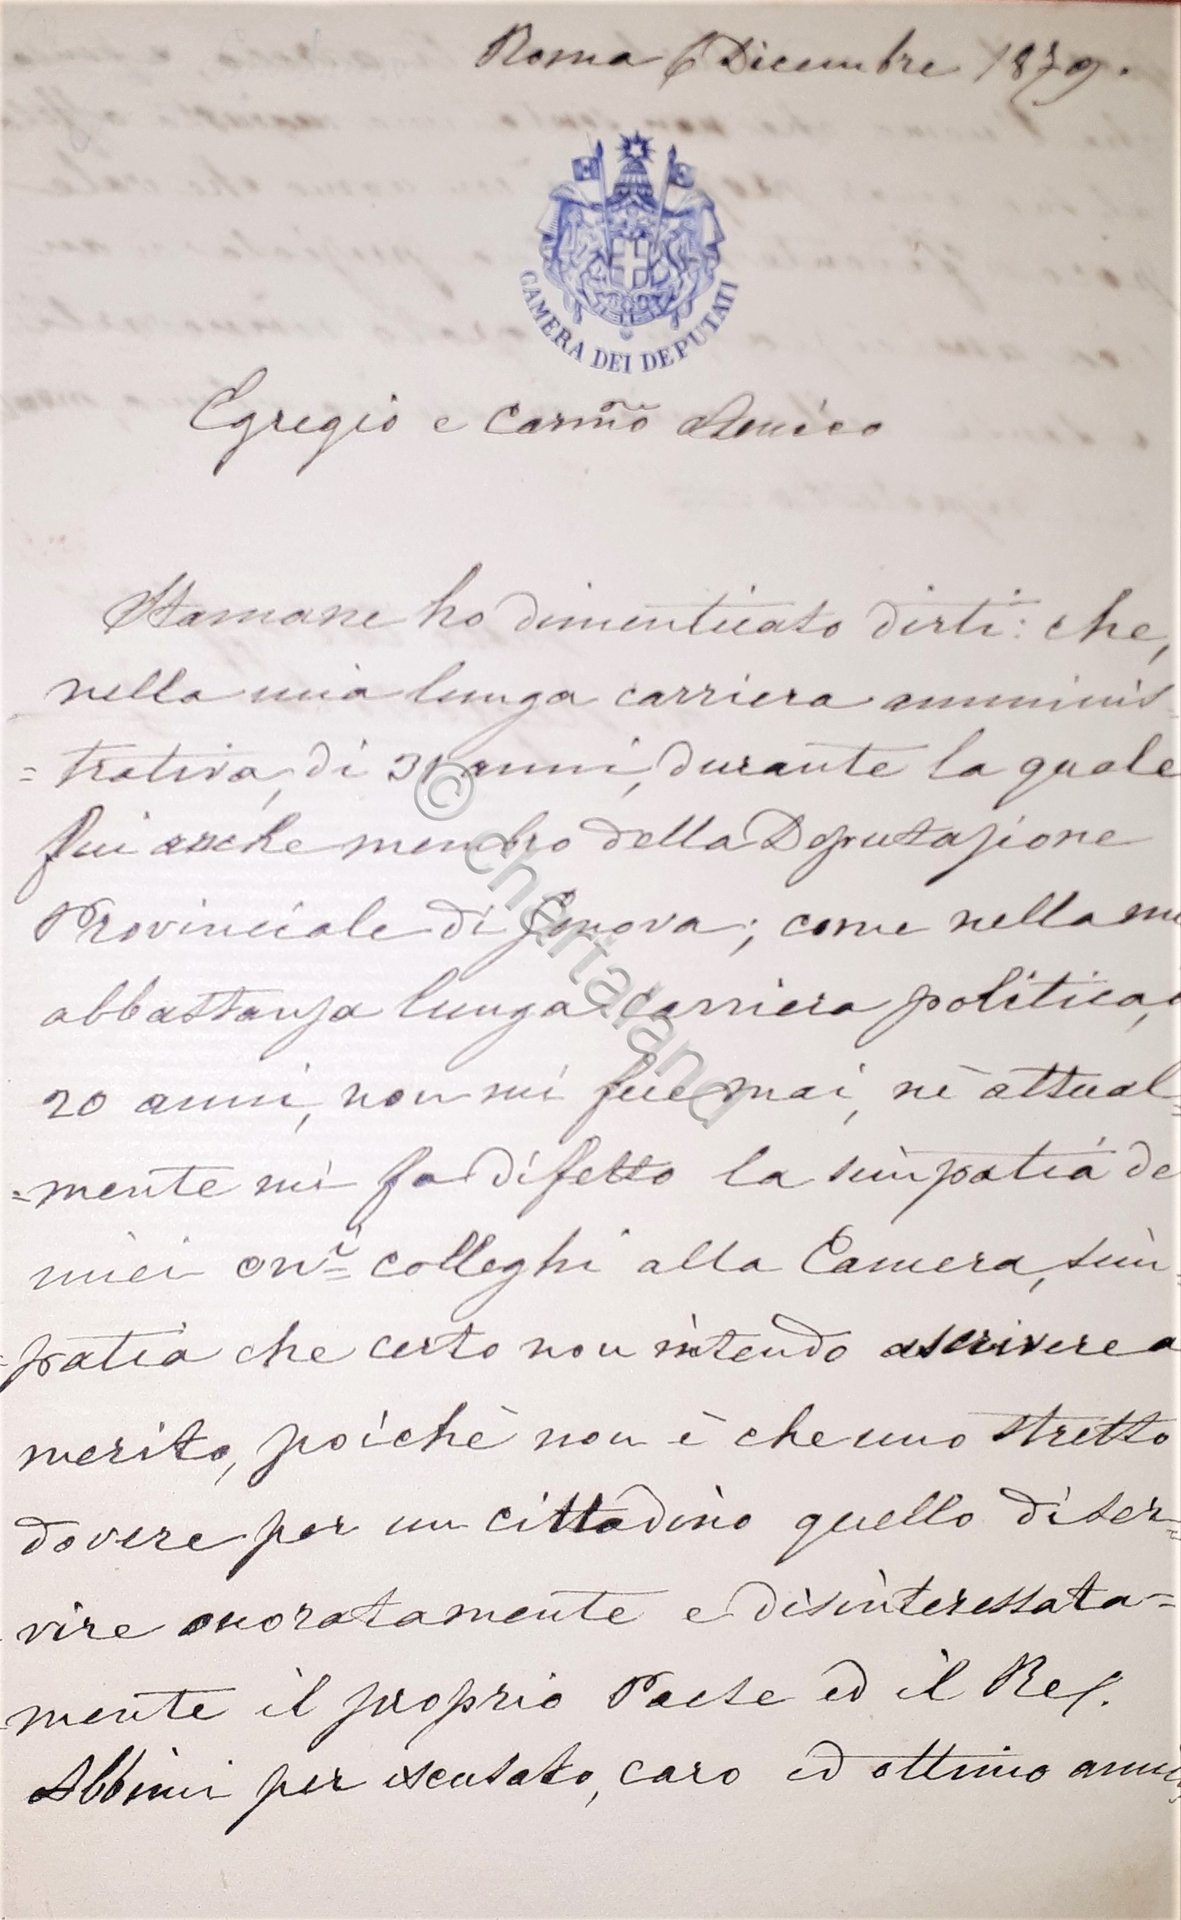 Roma 6 Dicembre 1879.
CAMERA DEI DEPUTATI
Egregio e Carmo Amico
Stamane ho dimenticato dirti: che,
nella mia lunga carriera amminis-
=trativa, di 31 anni, durante la quale
fui anche membro della Deputazione
Provinciale di Genova; come nella mi
abbastanza lunga carriera politica,
20 anni, non mi fece mai, nè attual=
=mente mi fa difetto la simpatia de
miei oni colleghi alla Camera, sim=
=patia che certo non intendo ascrivere a
merito, poichè non è che uno stretto
dovere per un cittadino quello di ser=
vire onoratamente e disinteressata=
=mente il proprio Paese ed il Re.
Abbimi per iscusato, caro ed ottimo amico,
© chartaland